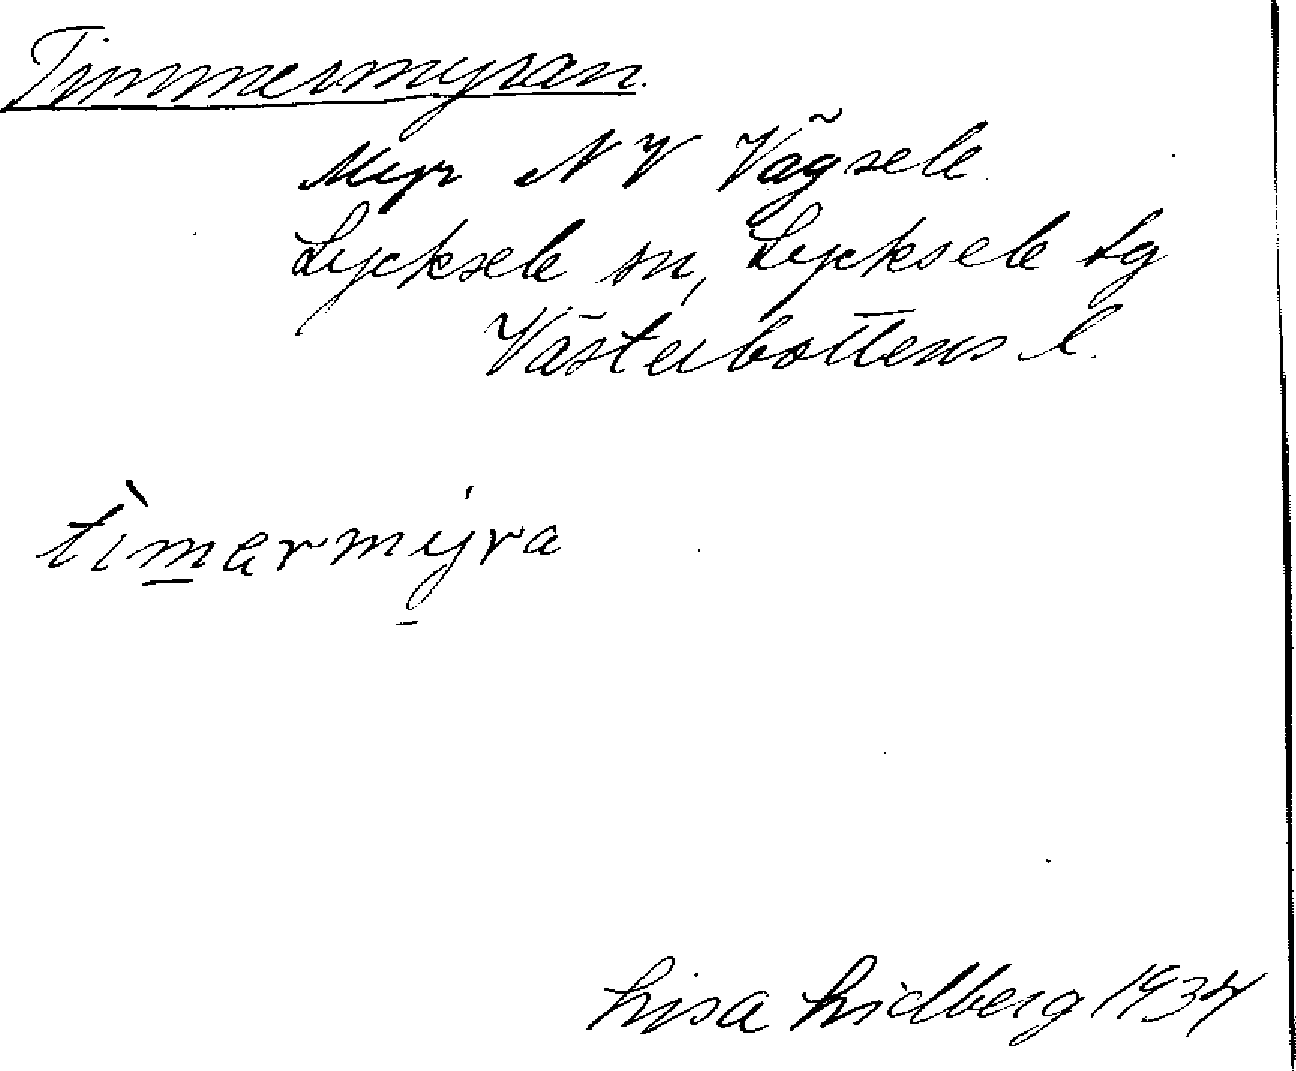 Timmermyran.
Myr NV Vägsele.
Lycksele sn, Lycksele tg
Västerbottens l.
tìmarmýra
Lisa Lidberg 1934